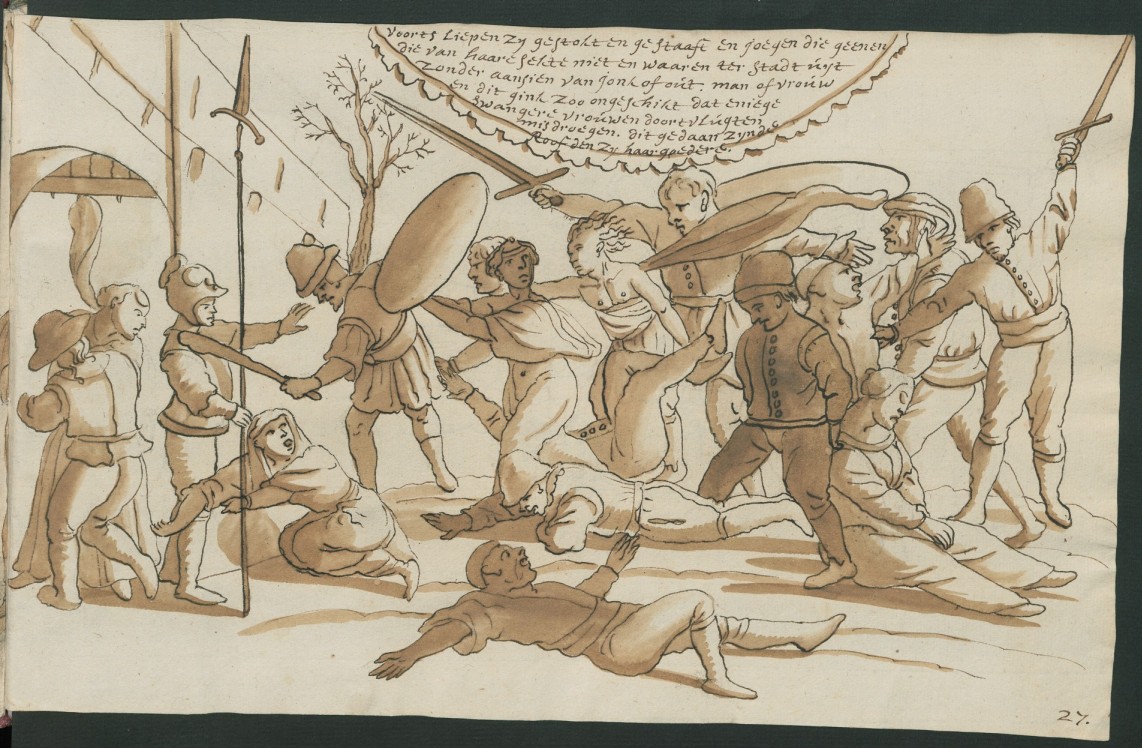 Voorts liepen zy gestokt en gestaaft en joegen die geenen
die van haare sekte niet en waaren ter stadt uyt
zonder aansien van jonk of oůt, man of vrouw
en dit gink zoo ongeschikt dat eniege
swangere vrouwen doort vlugten
misdroegen. dit gedaan zynde
roofden zy haar goedere.
27.